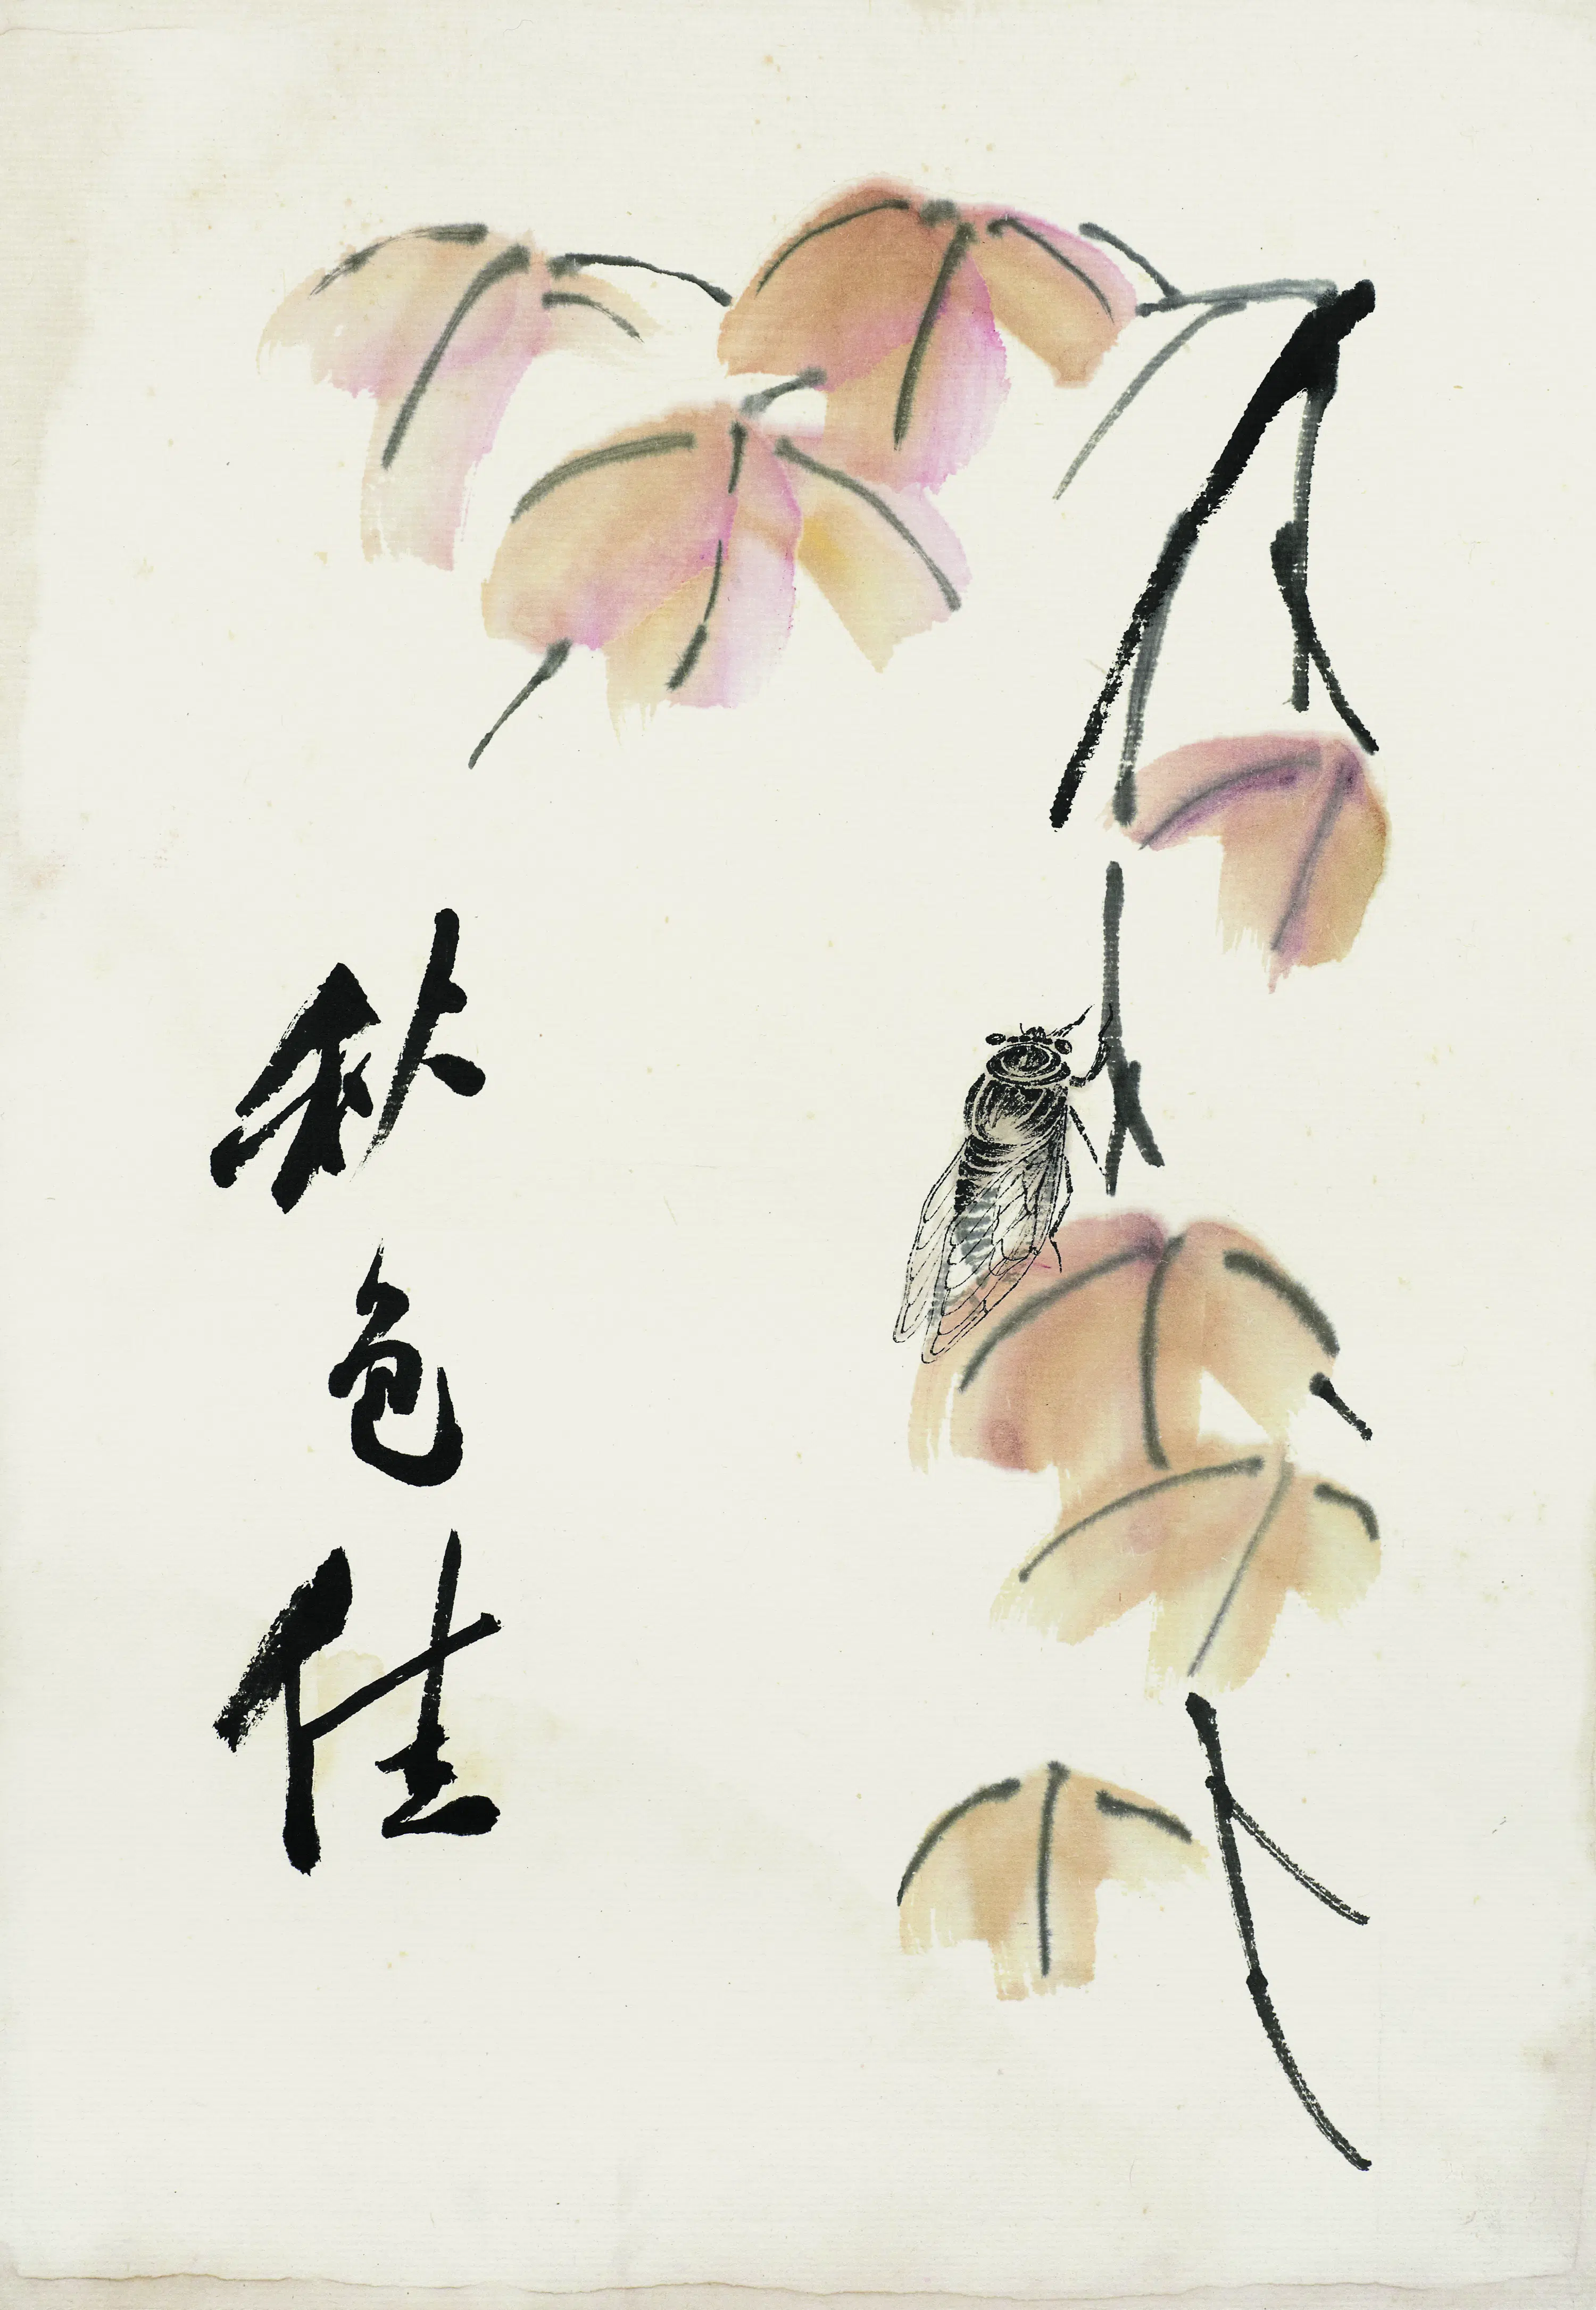 秋色佳